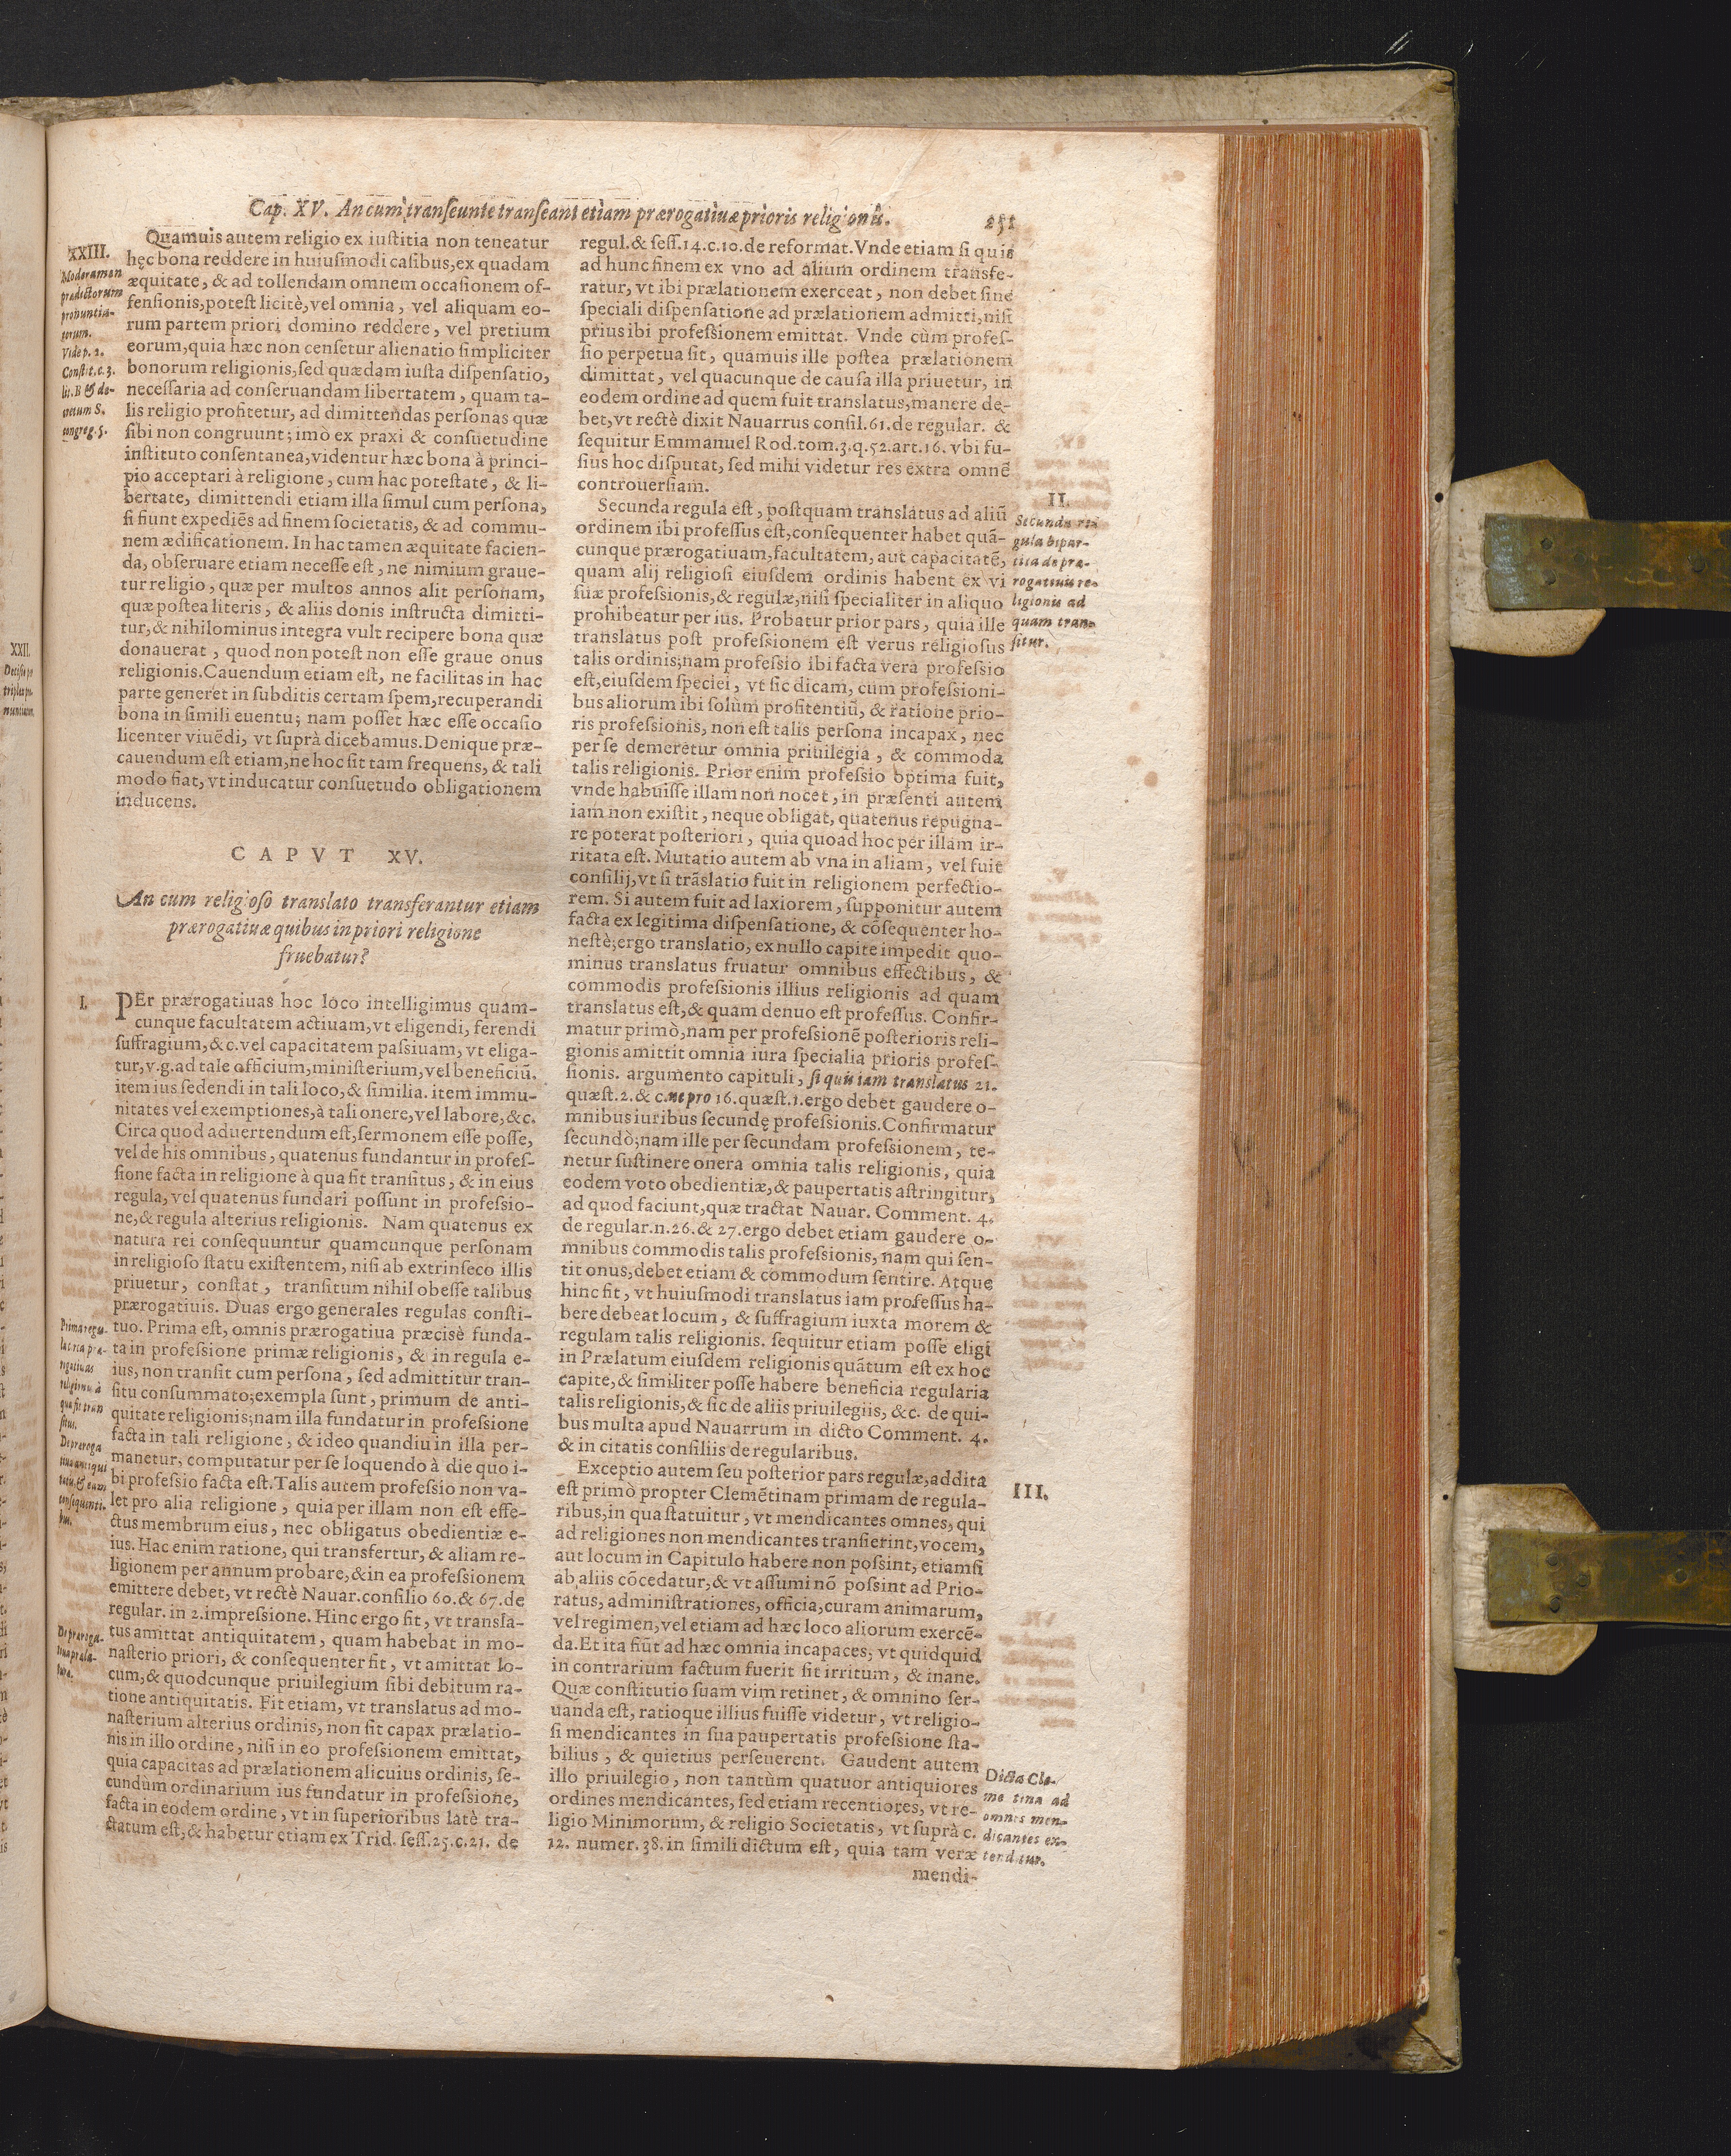 Cap. XV. An cum transeunte transeant etiam prærogatiuæ prioris religionis. 251
XXIII.
Moderamen
prædictorum
pronuntia-
torum.
Vide p. 2.
Constit. c. 3.
lit. B & de-
cretum 8.
congreg. 5.
Quamuis autem religio ex iustitia non teneatur
hęc bona reddere in huiusmodi casibus, ex quadam
æquitate, & ad tollendam omnem occasionem of-
fensionis, potest licitè, vel omnia, vel aliquam eo-
rum partem priori domino reddere, vel pretium
eorum, quia hæc non censetur alienatio simpliciter
bonorum religionis, sed quædam iusta dispensatio,
necessaria ad conseruandam libertatem, quam ta-
lis religio profitetur, ad dimittendas personas quæ
sibi non congruunt; imò ex praxi & consuetudine
instituto consentanea, videntur hæc bona à princi-
pio acceptari à religione, cum hac potestate, & li-
bertate, dimittendi etiam illa simul cum persona,
si fiunt expediẽs ad finem societatis, & ad commu-
nem ædificationem. In hac tamen æquitate facien-
da, obseruare etiam necesse est, ne nimium graue-
tur religio, quæ per multos annos alit personam,
quæ postea literis, & aliis donis instructa dimitti-
tur, & nihilominus integra vult recipere bona quæ
donauerat, quod non potest non esse graue onus
religionis. Cauendum etiam est, ne facilitas in hac
parte generet in subditis certam spem, recuperandi
bona in simili euentu; nam posset hæc esse occasio
licenter viuẽdi, vt suprà dicebamus. Denique præ-
cauendum est etiam, ne hoc sit tam frequens, & tali
modo fiat, vt inducatur consuetudo obligationem
inducens.
CAPVT XV.
An cum religioso translato transferantur etiam
prærogatiuæ quibus in priori religione
fruebatur?
I.
PEr prærogatiuas hoc loco intelligimus quam-
cunque facultatem actiuam, vt eligendi, ferendi
suffragium, &c. vel capacitatem passiuam, vt eliga-
tur, v. g. ad tale officium, ministerium, vel beneficiũ.
item ius sedendi in tali loco, & similia. item immu-
nitates vel exemptiones, à tali onere, vel labore, &c.
Circa quod aduertendum est, sermonem esse posse,
vel de his omnibus, quatenus fundantur in profes-
sione facta in religione à qua fit transitus, & in eius
regula, vel quatenus fundari possunt in professio-
ne, & regula alterius religionis. Nam quatenus ex
natura rei consequuntur quamcunque personam
in religioso statu existentem, nisi ab extrinseco illis
priuetur, constat, transitum nihil obesse talibus
prærogatiuis. Duas ergo generales regulas consti-
tuo. Prima est, omnis prærogatiua præcisè funda-
ta in professione primæ religionis, & in regula e-
ius, non transit cum persona, sed admittitur tran-
situ consummato; exempla sunt, primum de anti-
quitate religionis; nam illa fundatur in professione
facta in tali religione, & ideo quandiu in illa per-
manetur, computatur per se loquendo à die quo i-
bi professio facta est. Talis autem professio non va-
let pro alia religione, quia per illam non est effe-
ctus membrum eius, nec obligatus obedientiæ e-
ius. Hac enim ratione, qui transfertur, & aliam re-
ligionem per annum probare, & in ea professionem
emittere debet, vt rectè Nauar. consilio 60. & 67. de
regular. in 2. impressione. Hinc ergo fit, vt transla-
tus amittat antiquitatem, quam habebat in mo-
nasterio priori, & consequenter fit, vt amittat lo-
cum, & quodcunque priuilegium sibi debitum ra-
tione antiquitatis. Fit etiam, vt translatus ad mo-
nasterium alterius ordinis, non sit capax prælatio-
nis in illo ordine, nisi in eo professionem emittat,
quia capacitas ad prælationem alicuius ordinis, se-
cundùm ordinarium ius fundatur in professione,
facta in eodem ordine, vt in superioribus latè tra-
ctatum est, & habetur etiam ex Trid. sess. 25. c. 21. de
Prima regu-
qua fit tran
situs.
De præroga
tiua antiqui
consequenti-
bus.
De præroga-
tiua præla-
turæ.
regul. & sess. 14. c. 10. de reformat. Vnde etiam si quis
ad hunc finem ex vno ad alium ordinem transfe-
ratur, vt ibi prælationem exerceat, non debet sine
speciali dispensatione ad prælationem admitti, nisi
prius ibi professionem emittat. Vnde cùm profes-
sio perpetua sit, quamuis ille postea prælationem
dimittat, vel quacunque de causa illa priuetur, in
eodem ordine ad quem fuit translatus, manere de-
bet, vt rectè dixit Nauarrus consil. 61. de regular. &
sequitur Emmanuel Rod. tom. 3. q. 52. art. 16. vbi fu-
sius hoc disputat, sed mihi videtur res extra omnẽ
controuersiam.
Secunda regula est, postquam translatus ad aliũ
ordinem ibi professus est, consequenter habet quã-
cunque prærogatiuam, facultatem, aut capacitatẽ,
quam alij religiosi eiusdem ordinis habent ex vi
suæ professionis, & regulæ, nisi specialiter in aliquo
prohibeatur per ius. Probatur prior pars, quia ille
translatus post professionem est verus religiosus
talis ordinis; nam professio ibi facta vera professio
est, eiusdem speciei, vt sic dicam, cum professioni-
bus aliorum ibi solùm profitentiũ, & ratione prio-
ris professionis, non est talis persona incapax, nec
per se demeretur omnia priuilegia, & commoda
talis religionis. Prior enim professio optima fuit,
vnde habuisse illam non nocet, in præsenti autem
iam non existit, neque obligat, quatenus repugna-
re poterat posteriori, quia quoad hoc per illam ir-
ritata est. Mutatio autem ab vna in aliam, vel fuit
consilij, vt si trãslatio fuit in religionem perfectio-
rem. Si autem fuit ad laxiorem, supponitur autem
facta ex legitima dispensatione, & cõsequenter ho-
nestè; ergo translatio, ex nullo capite impedit quo-
minus translatus fruatur omnibus effectibus, &
commodis professionis illius religionis ad quam
translatus est, & quam denuo est professus. Confir-
matur primò, nam per professionẽ posterioris reli-
gionis amittit omnia iura specialia prioris profes-
sionis. argumento capituli, si quis iam translatus 21.
quæst. 2. & c. ne pro 16. quæst. 1. ergo debet gaudere o-
mnibus iuribus secundę professionis. Confirmatur
secundò; nam ille per secundam professionem, te-
netur sustinere onera omnia talis religionis, quia
eodem voto obedientiæ, & paupertatis astringitur,
ad quod faciunt, quæ tractat Nauar. Comment. 4.
de regular. n. 26. & 27. ergo debet etiam gaudere o-
mnibus commodis talis professionis, nam qui sen-
tit onus, debet etiam & commodum sentire. Atque
hinc fit, vt huiusmodi translatus iam professus ha-
bere debeat locum, & suffragium iuxta morem &
regulam talis religionis. sequitur etiam posse eligi
in Prælatum eiusdem religionis quãtum est ex hoc
capite, & similiter posse habere beneficia regularia
talis religionis, & sic de aliis priuilegiis, &c. de qui-
bus multa apud Nauarrum in dicto Comment. 4.
& in citatis consiliis de regularibus.
Exceptio autem seu posterior pars regulæ, addita
est primò propter Clemẽtinam primam de regula-
ribus, in qua statuitur, vt mendicantes omnes, qui
ad religiones non mendicantes transierint, vocem,
aut locum in Capitulo habere non possint, etiamsi
ab aliis cõcedatur, & vt assumi nõ possint ad Prio-
ratus, administrationes, officia, curam animarum,
vel regimen, vel etiam ad hæc loco aliorum exercẽ-
da. Et ita fiũt ad hæc omnia incapaces, vt quidquid
in contrarium factum fuerit sit irritum, & inane.
Quæ constitutio suam vim retinet, & omnino ser-
uanda est, ratioque illius fuisse videtur, vt religio-
si mendicantes in sua paupertatis professione sta-
bilius, & quietius perseuerent. Gaudent autem
illo priuilegio, non tantùm quatuor antiquiores
ordines mendicantes, sed etiam recentiores, vt re-
ligio Minimorum, & religio Societatis, vt suprà c.
12. numer. 38. in simili dictum est, quia tam veræ
mendi-
II.
Secunda re-
gula bipar-
tita de præ-
rogatiuis re-
ligionis ad
quam tran-
situr.
III.
Dicta Cle-
me tina ad
omnes men-
dicantes ex-
tenditur.
XXII.